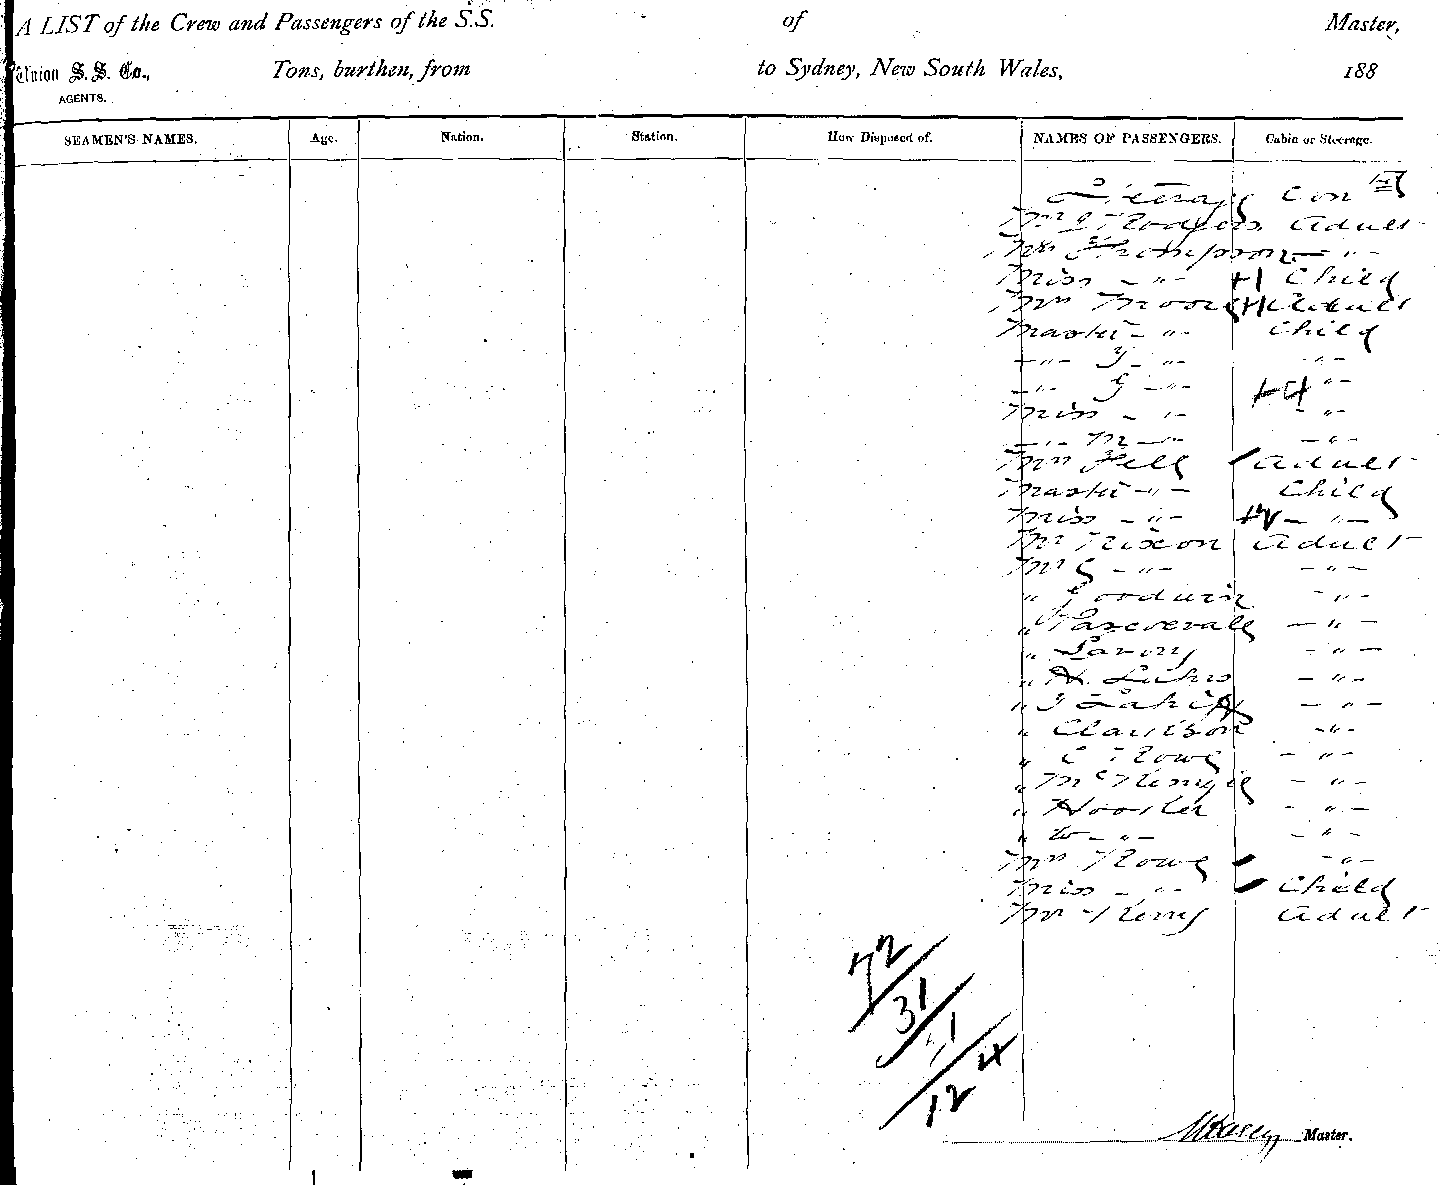 A LIST of the Crew and Passengers of the S.S. of Master,
Union S. S. Co., Tons, burthen, from to Sydney, New South Wales, 188
AGENTS.
SEAMEN'S NAMES. Age. Nation. Station. How Disposed of. NAMES OF PASSENGERS. Cabin or Steerage.
Steerage Con
Mr J Rodgers Adult
Mrs Thompson — " —
Miss — " — +1 Child
Mrs Moore +1 Adult
Master — " — Child
— " — J — " — — " —
— " — G — " — +4 — " —
Miss — " — — " —
— " — M — " — — " —
Mrs Fell Adult
Master — " — Child
Miss — " — +2 — " —
Mr Rixon Adult
Mr G — " — — " —
" Goodwin — " —
" — " —
" Lavory — " —
" H. Luhrs — " —
" J — " —
" Clarkson — " —
" C Rowe — " —
" McKenzie — " —
" Hooster — " —
" W — " — — " —
Mrs Rowe — " —
Miss — " — Child
Mr Kerry Adult
72
31
11
12 4
Master.